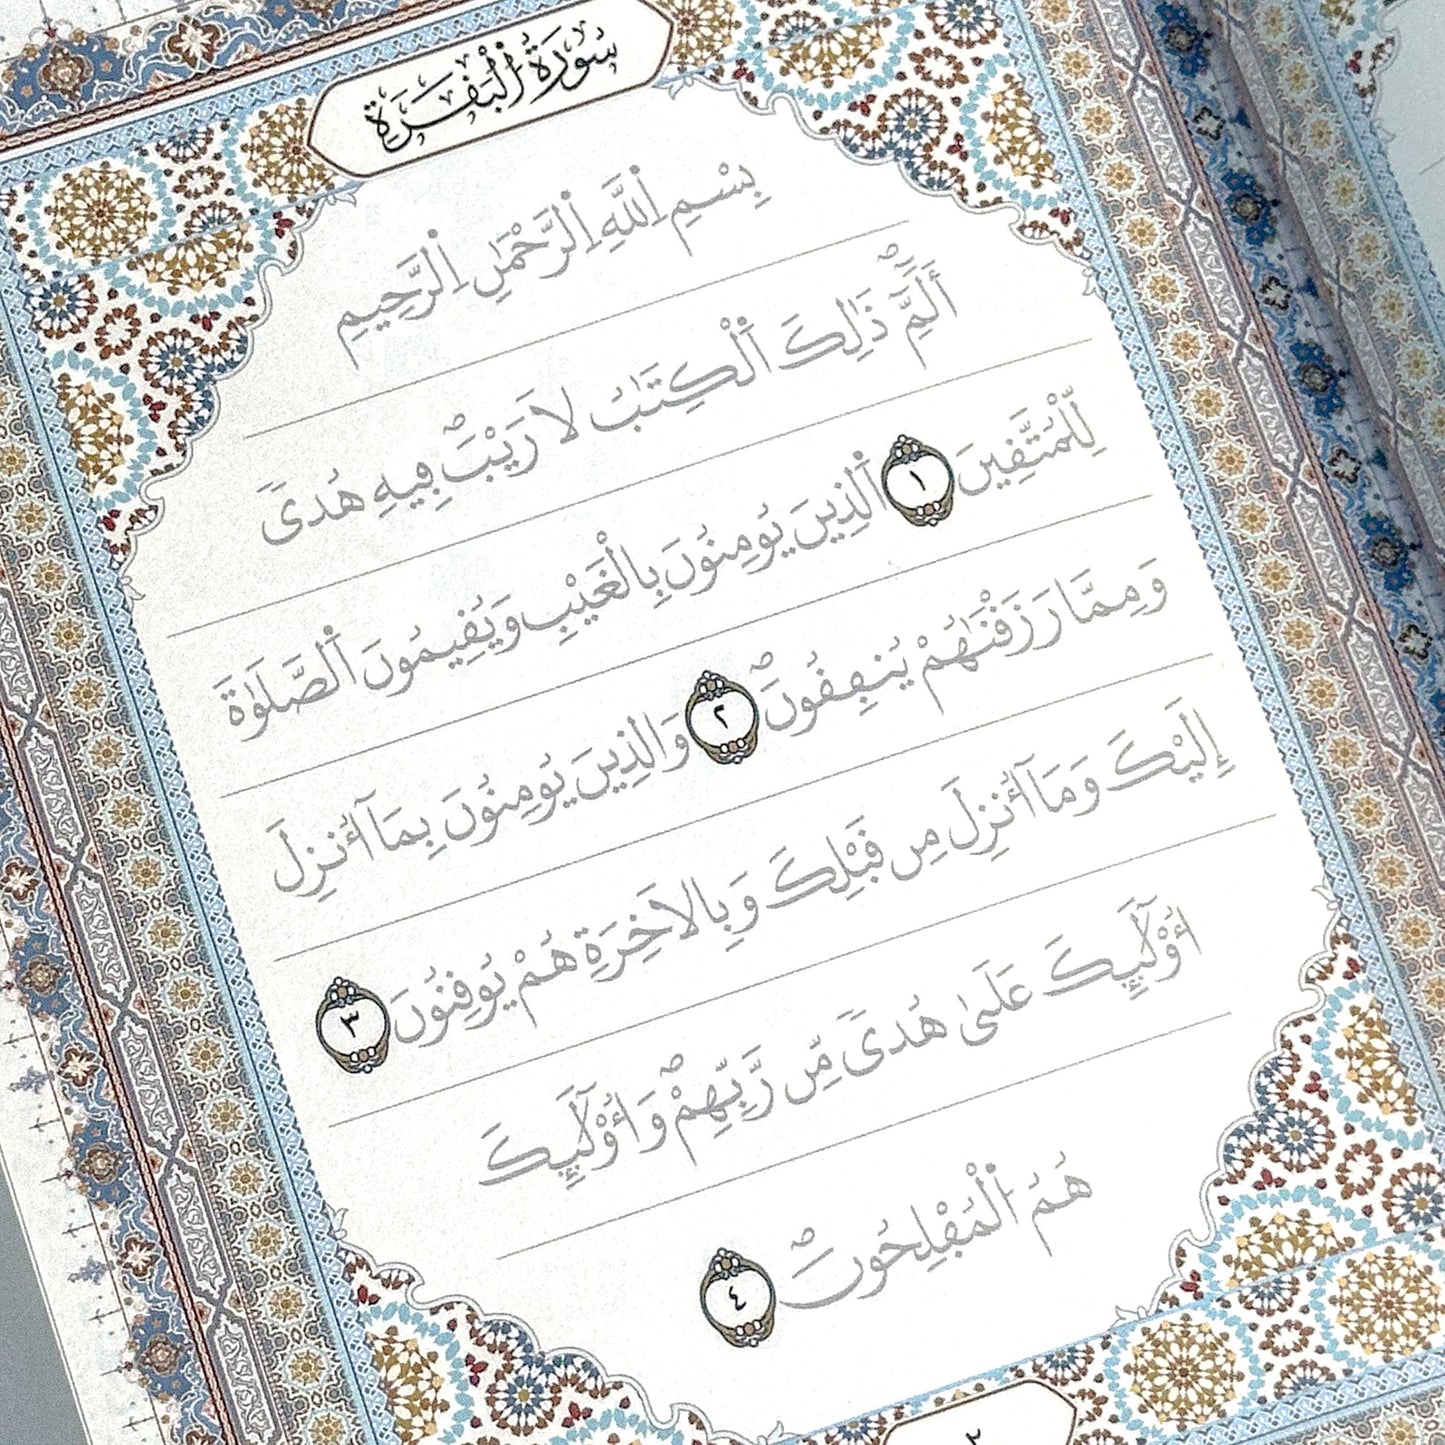 سُورَةُ الْبَقَرَةِ
بِسْمِ اِ۬للَّهِ اِ۬لرَّحْمَٰنِ اِ۬لرَّحِيمِ
أَلَٓمِّٓۖ ذَٰلِكَ اَ۬لْكِتَٰبُ لَا رَيْبَۖ فِيهِ هُدىٗ
لِّلْمُتَّقِينَ ١ اَ۬لذِينَ يُومِنُونَ بِالْغَيْبِ وَيُقِيمُونَ اَ۬لصَّلَوٰةَ
وَمِمَّا رَزَقْنَٰهُمْ يُنفِقُونَۖ ٢ وَالذِينَ يُومِنُونَ بِمَآ أُنزِلَ
إِلَيْكَ وَمَآ أُنزِلَ مِن قَبْلِكَ وَبِالَاخِرَةِ هُمْ يُوقِنُونَ ٣
أُوْلَٰٓئِكَ عَلَىٰ هُدىٗ مِّن رَّبِّهِمْۖ وَأُوْلَٰٓئِكَ
هُمُ اُ۬لْمُفْلِحُونَۖ ٤
٢